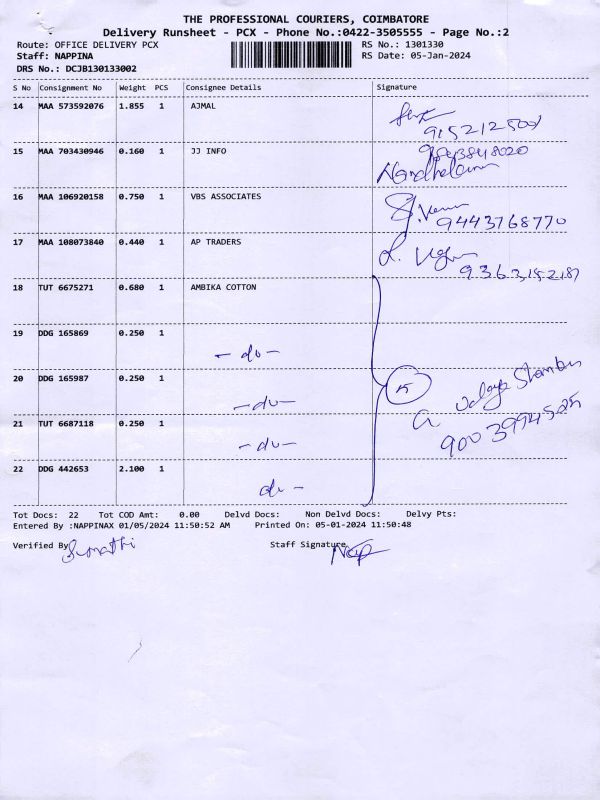 THE PROFESSIONAL COURIERS, COIMBATORE
Delivery Runsheet - PCX - Phone No.:0422-3505555 - Page No.:2
Route: OFFICE DELIVERY PCX RS No.: 1301330
Staff: NAPPINA RS Date: 05-Jan-2024
DRS No.: DCJB130133002
S No Consignment No Weight PCS Consignee Details Signature
14 MAA 573592076 1.855 1 AJMAL
15 MAA 703430946 0.160 1 JJ INFO
16 MAA 106920158 0.750 1 VBS ASSOCIATES
9443768770
17 MAA 108073840 0.440 1 AP TRADERS
18 TUT 6675271 0.680 1 AMBIKA COTTON
19 DDG 165869 0.250 1
- du -
20 DDG 165987 0.250 1
- du -
21 TUT 6687118 0.250 1
- du -
22 DDG 442653 2.100 1
du -
Tot Docs: 22 Tot COD Amt: 0.00 Delvd Docs: Non Delvd Docs: Delvy Pts:
Entered By :NAPPINAX 01/05/2024 11:50:52 AM Printed On: 05-01-2024 11:50:48
Verified By Sumathi Staff Signature